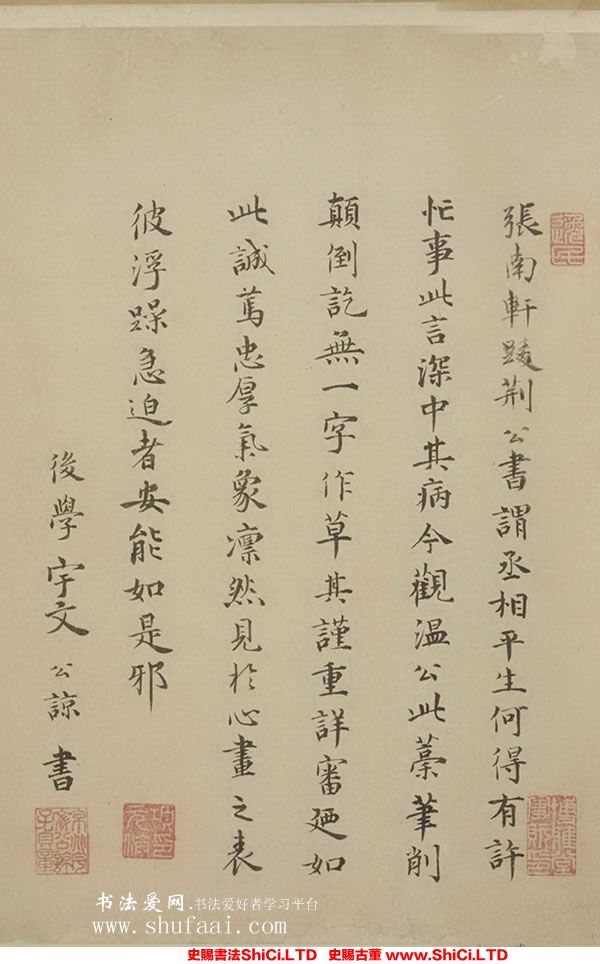 張南軒跋荆公書謂丞相平生何得有許
忙事此言深中其病今觀温公此藁筆削
顛倒訖無一字作草其謹重詳審廼如
此誠篤忠厚氣象凛然見於心畫之表
彼浮躁急迫者安能如是邪
後學宇文公諒書
书法爱网.书法爱好者学习平台
www.shufaai.com
史賜書法ShiCi.LTD 史賜古董 www.ShiCi.LTD